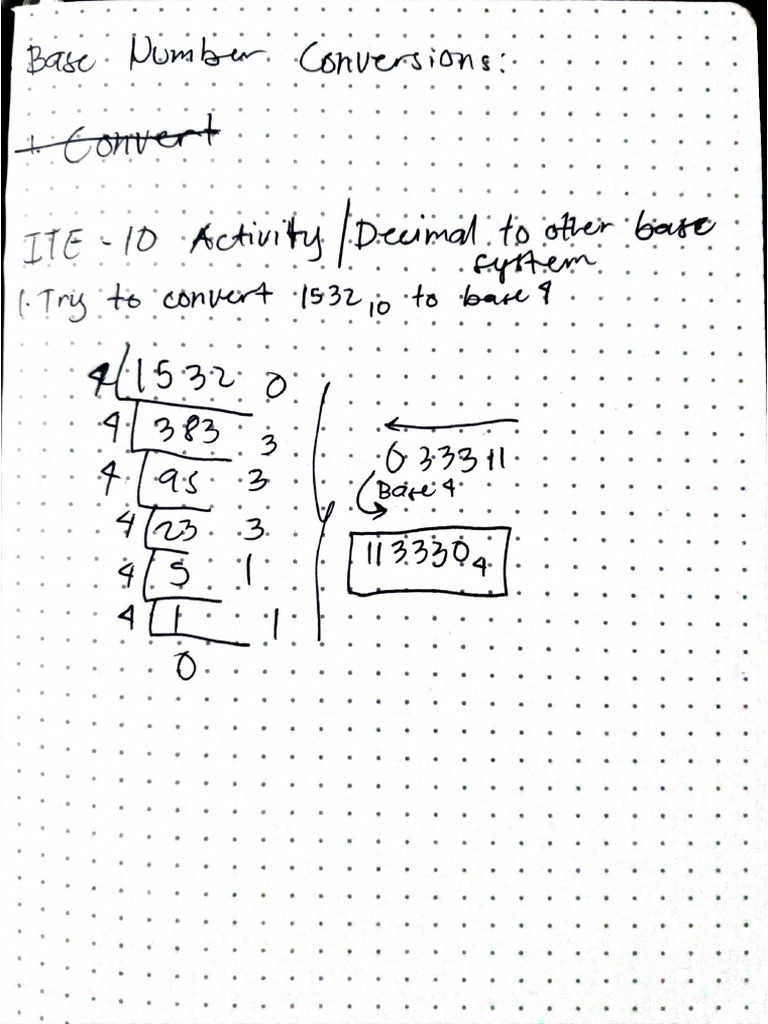 Base Number Conversions:
1. Convert
ITE-10 Activity/Decimal to other base
system
1. Try to convert 1532₁₀ to base 4
4 1532 0
4 383 3
4 95 3
4 23 3
4 5 1
4 1 1
0
033311
Base 4
113330₄